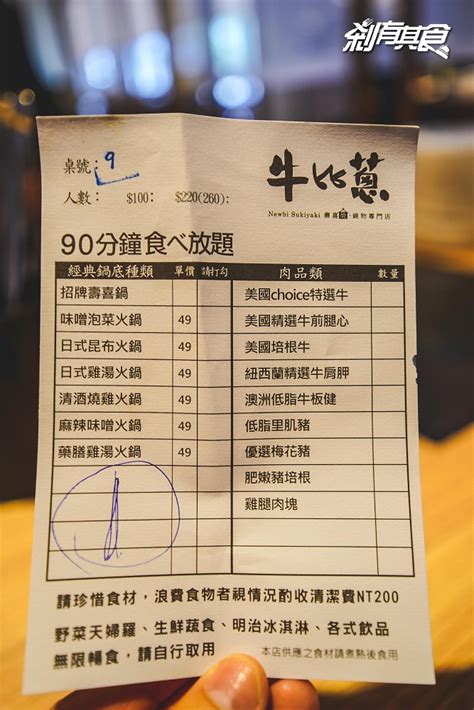 剎有其食
桌號：9
牛比蔥
人數： $100： $220(260)：
Newbi Sukiyaki 壽喜燒·鍋物專門店
90分鐘食べ放題
經典鍋底種類 單價 請打勾 肉品類 數量
招牌壽喜鍋 美國choice特選牛
味噌泡菜火鍋 49 美國精選牛前腿心
日式昆布火鍋 49 美國培根牛
日式雞湯火鍋 49 紐西蘭精選牛肩胛
清酒燒雞火鍋 49 澳洲低脂牛板健
麻辣味噌火鍋 49 低脂里肌豬
藥膳雞湯火鍋 49 優選梅花豬
肥嫩豬培根
雞腿肉塊
請珍惜食材，浪費食物者視情況酌收清潔費NT200
野菜天婦羅、生鮮蔬食、明治冰淇淋、各式飲品
無限暢食，請自行取用 本店供應之食材請煮熟後食用